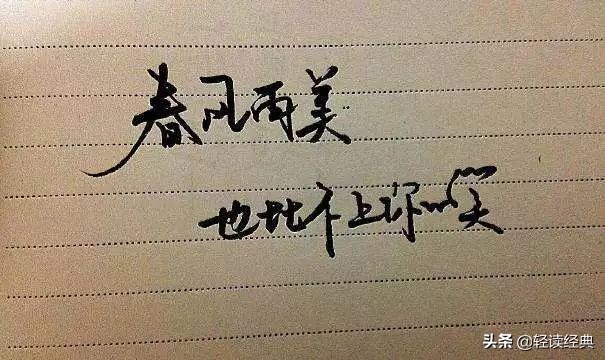 春风再美
也比不上你的笑
头条 @轻读经典